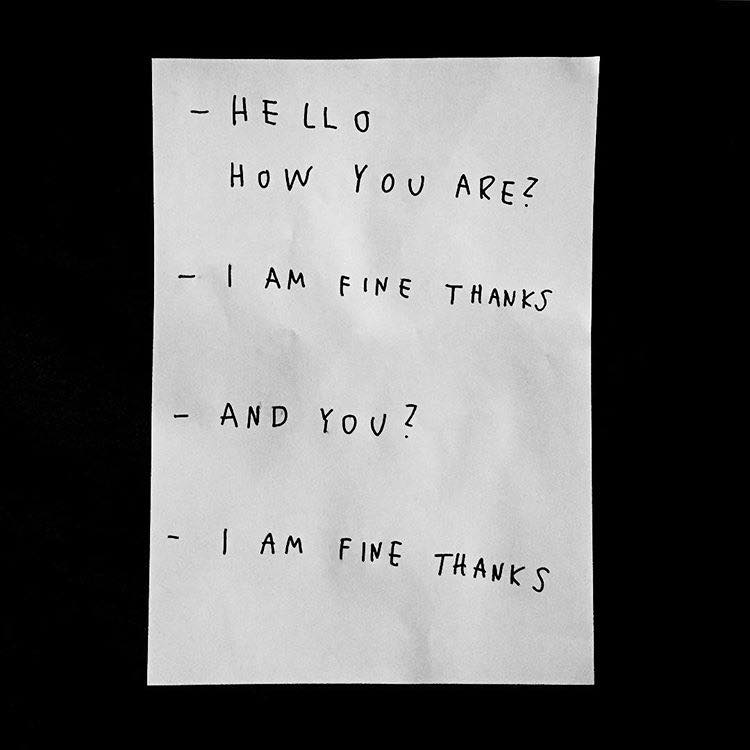 - HELLO
HOW YOU ARE?
- I AM FINE THANKS
- AND YOU?
- I AM FINE THANKS